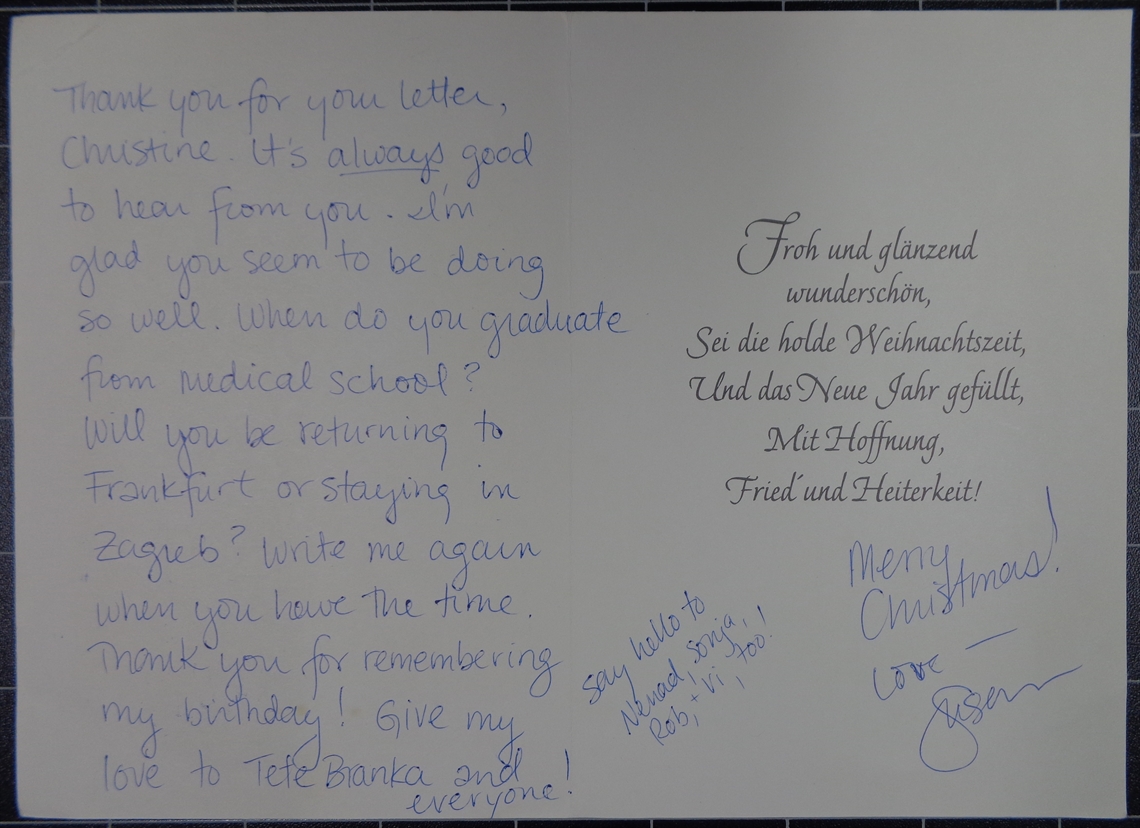 Thank you for your letter,
Christine. It's always good
to hear from you. I'm
glad you seem to be doing
so well. When do you graduate
from medical school?
Will you be returning to
Frankfurt or staying in
Zagreb? Write me again
when you have the time.
Thank you for remembering
my birthday! Give my
love to Tete Branka and
everyone!
Froh und glänzend
wunderschön,
Sei die holde Weihnachtszeit,
Und das Neue Jahr gefüllt,
Mit Hoffnung,
Fried' und Heiterkeit!
Merry
Christmas!
Love —
say hello to
Nenad, Sonja,
Rob, + Vi, too!